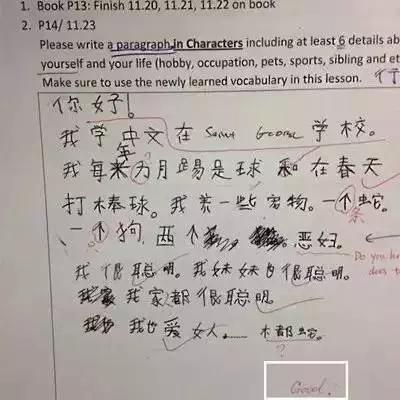 1. Book P13: Finish 11.20, 11.21, 11.22 on book
2. P14/ 11.23
Please write a paragraph In Characters including at least 6 details ab
yourself and your life (hobby, occupation, pets, sports, sibling and et
Make sure to use the newly learned vocabulary in this lesson.
你好!
我学中文在 Saint George 学校。
我每 月踢足球和在春天
打棒球。我养一些宠物。一个蛇。
条
一个狗 两个 。恶妇。
Do you ha
does t
我很聪明。我妹妹也很聪明。
我家都很聪明。
我也爱女人...... 都
?
Good!